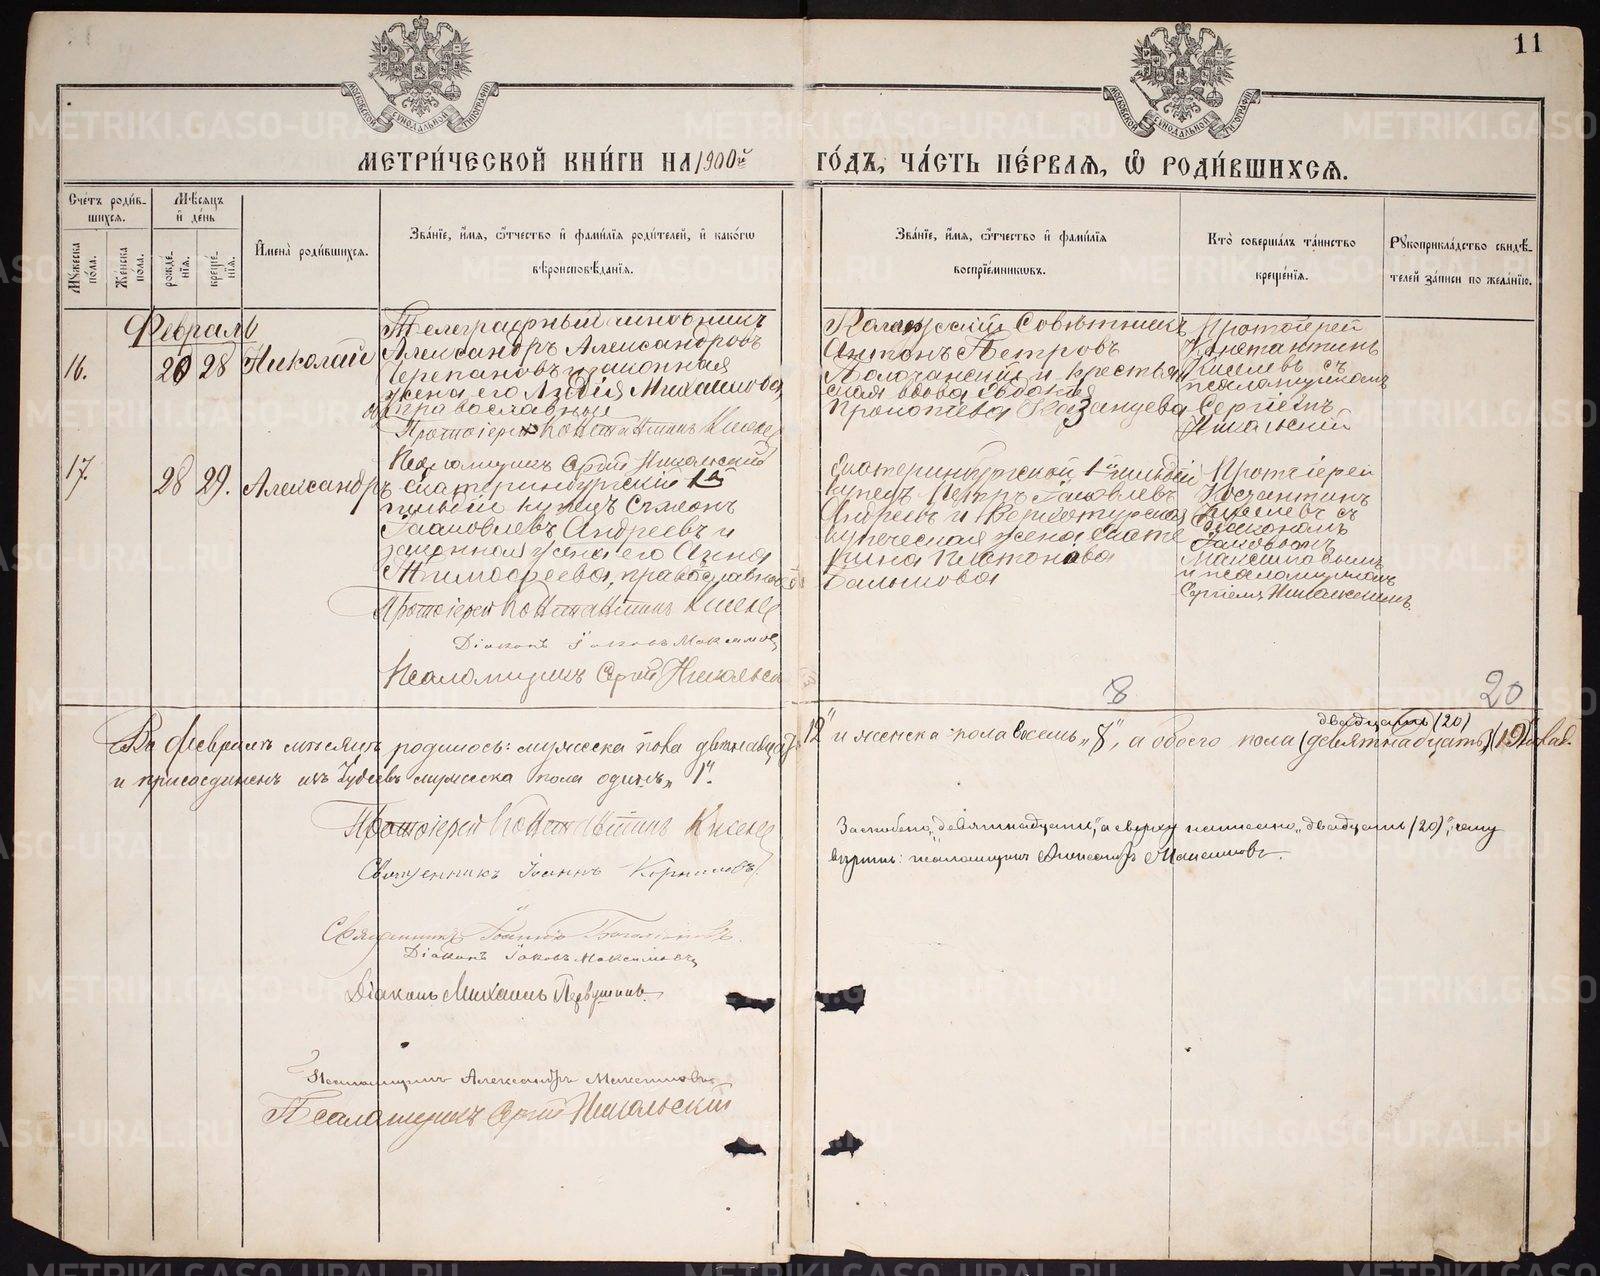 11
МОСКОВСКОЙ СѴНОДАЛЬНОЙ ТИПОГРАФІИ
МОСКОВСКОЙ СѴНОДАЛЬНОЙ ТИПОГРАФІИ
МЕТРИ́ЧЕСКОЙ КНИ́ГИ НА 1900й ГО́ДЪ, ЧА́СТЬ ПЕ́РВАѦ, Ѡ РОДИ́ВШИХСѦ.
Сче́тъ роди́в-
шихсѧ.
Мꙋ́жеска по́ла.
Же́нска по́ла.
Мѣ́сѧцъ
и҆ де́нь
рожде́-
нїѧ.
креще́-
нїѧ.
И҆мена̀ роди́вшихсѧ.
Зва́нїе, и҆́мѧ, ѻ҆́тчество и҆ фами́лїѧ роди́телей, и҆ како́гѡ
вѣроисповѣ́данїѧ.
Зва́нїе, и҆́мѧ, ѻ҆́тчество и҆ фами́лїѧ
воспрїе́мниковъ.
Кто̀ соверша́лъ та́инство
креще́нїѧ.
Рꙋкоприкла́дство свидѣ́-
телей за́писи по жела́нїю.
Февраль
16.
20 28 Николай
Телеграфный чиновникъ
Александръ Александровъ
Черепановъ и законная
жена его Лидія Михайлова,
оба православные
Протоіерей Константинъ Киселев
Псаломщикъ Сергій Никольскій
Антонъ Петровъ
Прокопіева Казанцева
Протоіерей
Константинъ
Киселевъ съ
псаломщикомъ
Сергіемъ
Никольскій
17.
28 29. Александръ
Екатеринбургскій 1й
гильдіи купецъ Симеонъ
Іаковлевъ Андреевъ и
законная жена его Анна
Тимофеева, православные
Протоіерей Константинъ Киселев
Діаконъ Іаковъ Максимов
Псаломщикъ Сергій Никольск
Екатеринбургской 1й гильдіи
купецъ Петръ Іаковлевъ
Андреевъ и Верхотурская
купеческая жена Екате
рина Платонова
Балышова
Протоіерей
Константинъ
Киселевъ съ
діакономъ
Іаковомъ
Максимовымъ
и псаломщикомъ
Сергіемъ Никольскимъ.
8
20
двадцать (20)
Въ Февралѣ мѣсяцѣ родилось: мужеска пола двѣнадцать 12" и женска пола восемь "8", а обоего пола (девятнадцать) (19)
и присоединенъ изъ Іудеевъ мужеска пола одинъ "1".
Протоіерей Константинъ Киселев
Священникъ Іоаннъ Корниловъ
Священникъ Іоаннъ
Діаконъ Іаковъ Максимовъ
Діаконъ Михаилъ Первушинъ
Псаломщикъ Александръ
Псаломщикъ Сергій Никольскій
Заскоблено "девятнадцать", а сверху написано "двадцать (20)", чему
вѣрить: псаломщикъ Александръ
METRIKI.GASO-URAL.RU